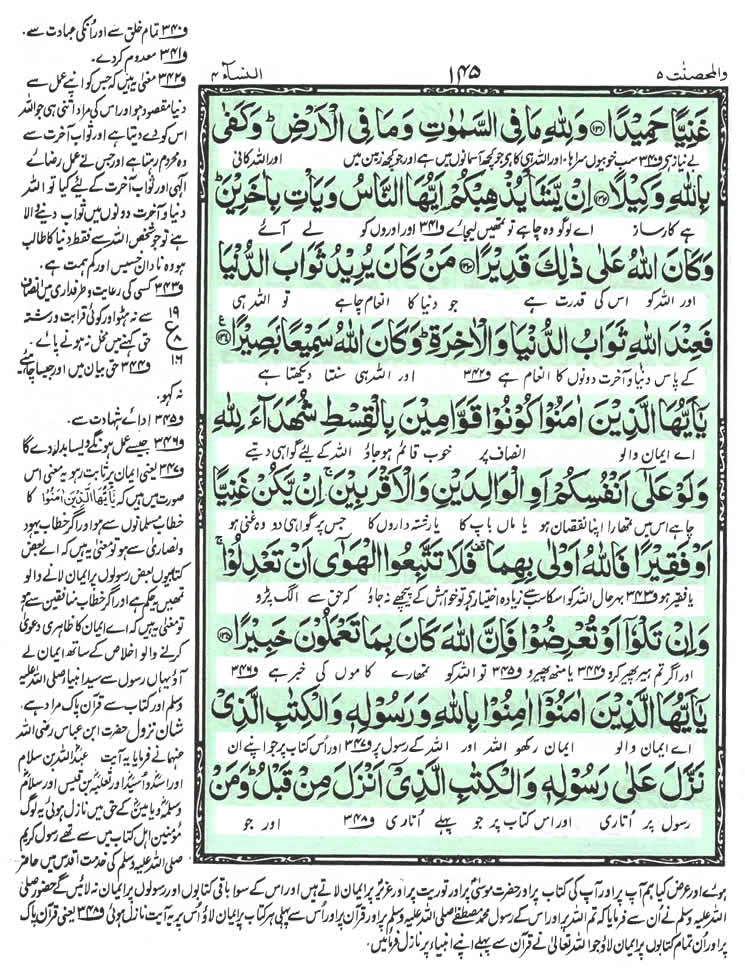 والمحصنٰت ۵ ۱۴۵ النسآء ۴
غَنِيًّا حَمِيْدًا ﴿۱۳۱﴾ وَلِلّٰهِ مَا فِی السَّمٰوٰتِ وَمَا فِی الْاَرْضِ ؕ وَكَفٰی
بے نیاز ہے ف۳۴۰ سب خوبیوں سراہا اور اللہ ہی کا ہے جو کچھ آسمانوں میں ہے اور جو کچھ زمین میں اور اللہ کافی
بِاللّٰهِ وَكِيْلًا ﴿۱۳۲﴾ اِنْ يَّشَاْ يُذْهِبْكُمْ اَيُّهَا النَّاسُ وَيَاْتِ بِاٰخَرِيْنَ ؕ
ہے کارساز اے لوگو وہ چاہے تو تمھیں لیجائے ف۳۴۱ اور اوروں کو لے آئے
وَكَانَ اللّٰهُ عَلٰی ذٰلِكَ قَدِيْرًا ﴿۱۳۳﴾ مَنْ كَانَ يُرِيْدُ ثَوَابَ الدُّنْيَا
اور اللہ کو اس کی قدرت ہے جو دنیا کا انعام چاہے تو اللہ ہی
فَعِنْدَ اللّٰهِ ثَوَابُ الدُّنْيَا وَالْاٰخِرَةِ ؕ وَكَانَ اللّٰهُ سَمِيْعًۢا بَصِيْرًا ﴿۱۳۴﴾
کے پاس دنیا و آخرت دونوں کا انعام ہے ف۳۴۲ اور اللہ ہی سنتا دیکھتا ہے
يٰۤاَيُّهَا الَّذِيْنَ اٰمَنُوْا كُوْنُوْا قَوّٰمِيْنَ بِالْقِسْطِ شُهَدَآءَ لِلّٰهِ
اے ایمان والو انصاف پر خوب قائم ہو جاؤ اللہ کے لیے گواہی دیتے
وَلَوْ عَلٰۤی اَنْفُسِكُمْ اَوِ الْوَالِدَيْنِ وَالْاَقْرَبِيْنَ ۚ اِنْ يَّكُنْ غَنِيًّا
چاہے اس میں تمھارا اپنا نقصان ہو یا ماں باپ کا یا رشتہ داروں کا جس پر گواہی دو وہ غنی ہو
اَوْ فَقِيْرًا فَاللّٰهُ اَوْلٰی بِهِمَا ۫ فَلَا تَتَّبِعُوا الْهَوٰۤی اَنْ تَعْدِلُوْا ۚ
یا فقیر ہو ف۳۴۳ بہرحال اللہ کو اس کا سب سے زیادہ اختیار ہے تو خواہش کے پیچھے نہ جاؤ کہ حق سے الگ پڑو
وَاِنْ تَلْوٗۤا اَوْ تُعْرِضُوْا فَاِنَّ اللّٰهَ كَانَ بِمَا تَعْمَلُوْنَ خَبِيْرًا ﴿۱۳۵﴾
اور اگر تم ہیر پھیر کرو ف۳۴۴ یا منھ پھیرو ف۳۴۵ تو اللہ کو تمھارے کاموں کی خبر ہے ف۳۴۶
يٰۤاَيُّهَا الَّذِيْنَ اٰمَنُوْۤا اٰمِنُوْا بِاللّٰهِ وَرَسُوْلِهٖ وَالْكِتٰبِ الَّذِیْ
اے ایمان والو ایمان رکھو اللہ اور اللہ کے رسول پر ف۳۴۷ اور اس کتاب پر جو اپنے ان
نَزَّلَ عَلٰی رَسُوْلِهٖ وَالْكِتٰبِ الَّذِیْۤ اَنْزَلَ مِنْ قَبْلُ ؕ وَمَنْ
رسول پر اُتاری اور اس کتاب پر جو پہلے اُتاری ف۳۴۸ اور جو
ف۳۴۰ تمام خلق سے اور اُنکی عبادت سے۔
ف۳۴۱ معدوم کر دے۔
ف۳۴۲ معنی یہ ہیں کہ جس کو اپنے عمل سے
دنیا مقصود ہو اور اس کی مراد اتنی ہی ہو اللہ
اس کو دے دیتا ہے اور ثواب آخرت سے
وہ محروم رہتا ہے اور جس نے عمل رضائے
الٰہی اور ثواب آخرت کے لئے کیا تو اللہ
دنیا و آخرت دونوں میں ثواب دینے والا
ہے تو جو شخص اللہ سے فقط دنیا کا طالب
ہو وہ نادان خسیس اور کم ہمت ہے۔
ف۳۴۳ کسی کی رعایت و طرفداری میں انصاف
سے نہ ہٹو اور کوئی قرابت و رشتہ
حق کہنے میں مخل نہ ہونے پائے۔
ف۳۴۴ حق بیان میں اور جیسا چاہیئے
نہ کہو۔
۱۹
ع
۸
۱۶
ف۳۴۵ ادائے شہادت سے۔
ف۳۴۶ جیسے عمل ہونگے ویسا بدلہ دے گا
ف۳۴۷ یعنی ایمان پر ثابت رہو یہ معنی اس
صورت میں ہیں کہ یٰۤاَیُّهَا الَّذِیْنَ اٰمَنُوْا کا
خطاب مسلمانوں سے ہو اور اگر خطاب یہود
و نصاریٰ سے ہو تو معنی یہ ہیں کہ اے بعض
کتابوں بعض رسولوں پر ایمان لانے والو
تمھیں یہ حکم ہے اور اگر خطاب منافقین سے ہو
تو معنی یہ ہیں کہ اے ایمان کا ظاہری دعویٰ
کرنے والو اخلاص کے ساتھ ایمان لے
آؤ یہاں رسول سے سید انبیاء صلی اللہ علیہ
وسلم اور کتاب سے قرآن پاک مراد ہے۔
شان نزول حضرت ابن عباس رضی اللہ
عنہما نے فرمایا یہ آیت عبداللہ بن سلام
اور اسد و اُسید اور ثعلبہ بن قیس اور سلام و
سلمہ و یامین کے حق میں نازل ہوئی یہ لوگ
مؤمنین اہل کتاب میں سے تھے رسول کریم
صلی اللہ علیہ وسلم کی خدمت اقدس میں حاضر
ہوئے اور عرض کیا ہم آپ پر اور آپ کی کتاب پر اور حضرت موسیٰ پر اور توریت پر اور عزیر پر ایمان لاتے ہیں اور اس کے سوا باقی کتابوں اور رسولوں پر ایمان نہ لائیں گے حضور صلی
اللہ علیہ وسلم نے اُن سے فرمایا کہ تم اللہ پر اور اس کے رسول محمد مصطفےٰ صلی اللہ علیہ وسلم پر اور قرآن پر اور اُس سے پہلی ہر کتاب پر ایمان لاؤ اس پر یہ آیت نازل ہوئی ف۳۴۸ یعنی قرآن پاک
پر اور اُن تمام کتابوں پر ایمان لاؤ جو اللہ تعالیٰ نے قرآن سے پہلے اپنے انبیاء پر نازل فرمائیں۔